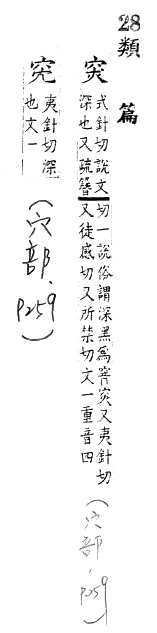 28
類篇
式針切說文
深也又疏簪
切一說俗謂深黑為窨突又夷針切
又徒感切又所禁切文一重音四
(穴部, P259)
夷針切深
也文一
(穴部, P259)